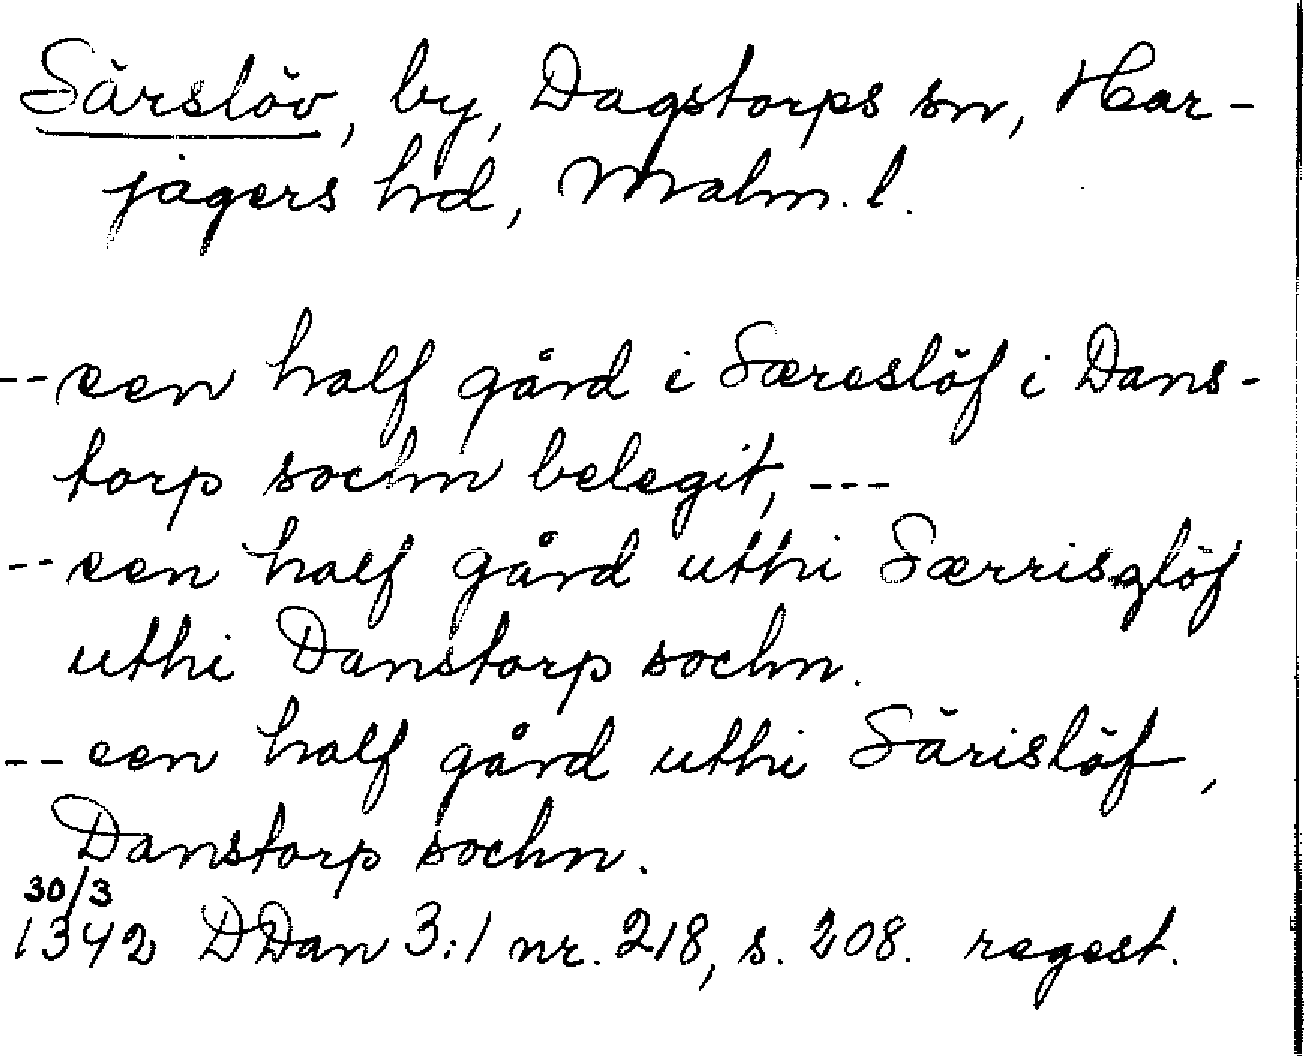 Särslöv, by, Dagstorps sn, Har-
jagers hd, Malm. l.
--een half gård i Særeslöf i Dans-
torp sochn belegit, ---
--een half gård uthi Særrisglöf
uthi Danstorp sochn.
--een half gård uthi Särislöf,
Danstorp sochn.
30/3
1342 DDan 3:1 nr. 218, s. 208. regest.